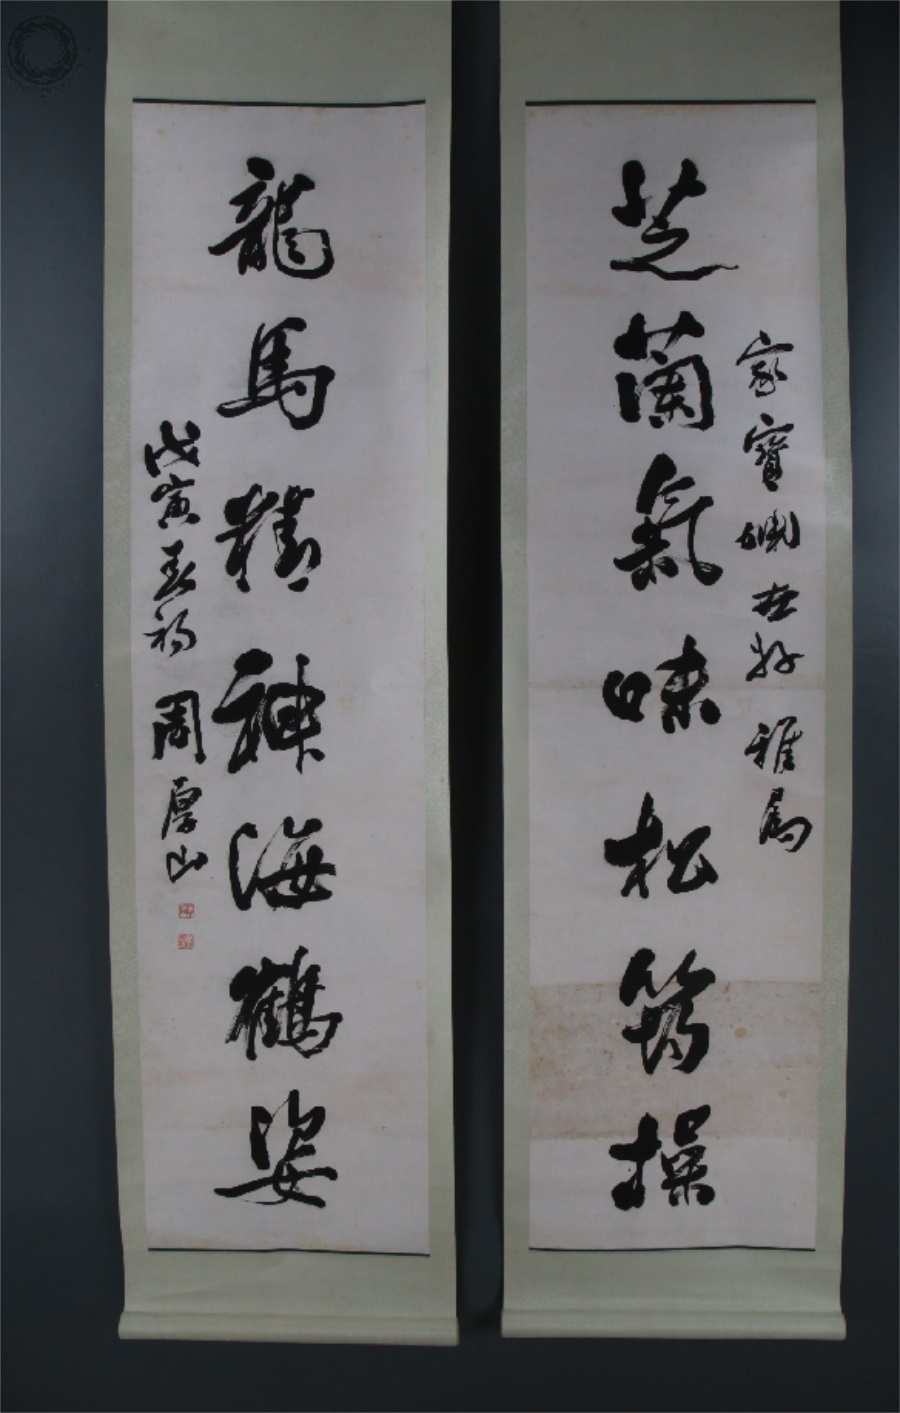 家寶世好 雅屬
芝蘭氣味松筠操
龍馬精神海鶴姿
戊寅春初 周厚山